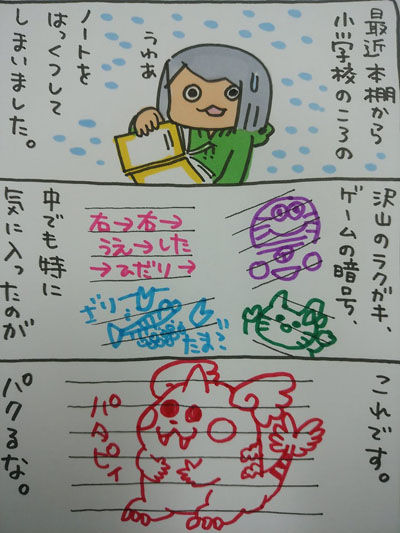 最近本棚から
小学校のころの
ノートを
はっくつして
しまいました。
うわぁ
沢山のラクガキ、
ゲームの暗号、
右→右→
うえ→した
→ひだり→
ざりー
たまご
中でも特に
気に入ったのが
これです。
パタピィ
パクるな。